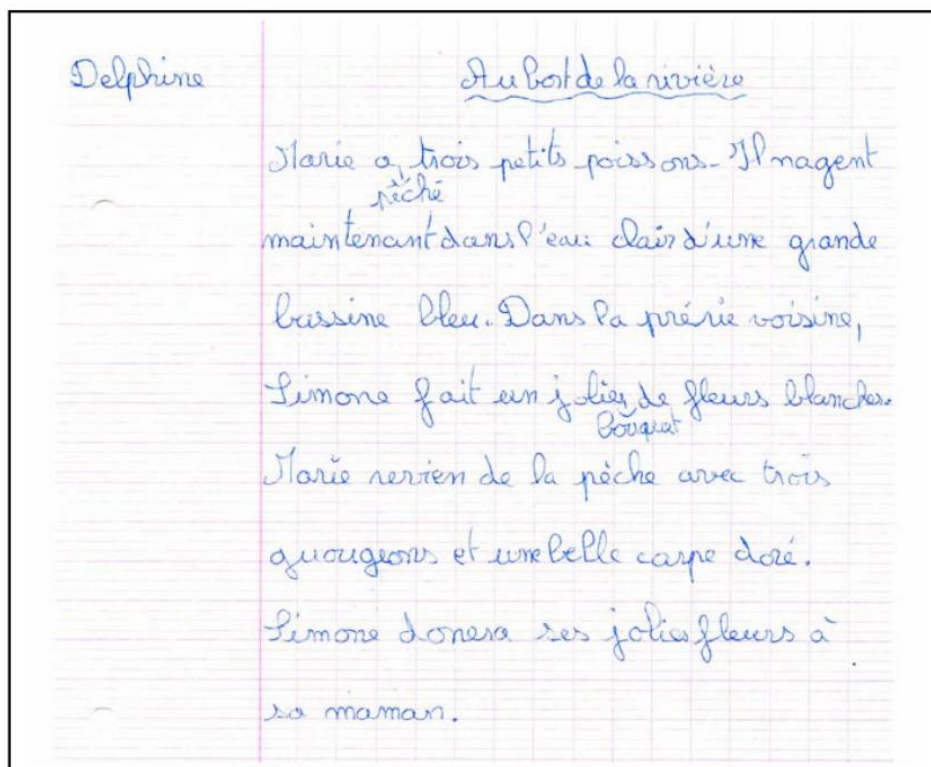 Delphine
Au bort de la rivière
Marie a trois petits poissons. Il nagent
pêché
maintenant dans l'eau clair d'une grande
bassine bleu. Dans la prérie voisine,
Simone fait un jolies de fleurs blanches.
bouquet
Marie revien de la pèche avec trois
guougeons et une belle carpe doré.
Simone donera ses jolies fleurs à
sa maman.